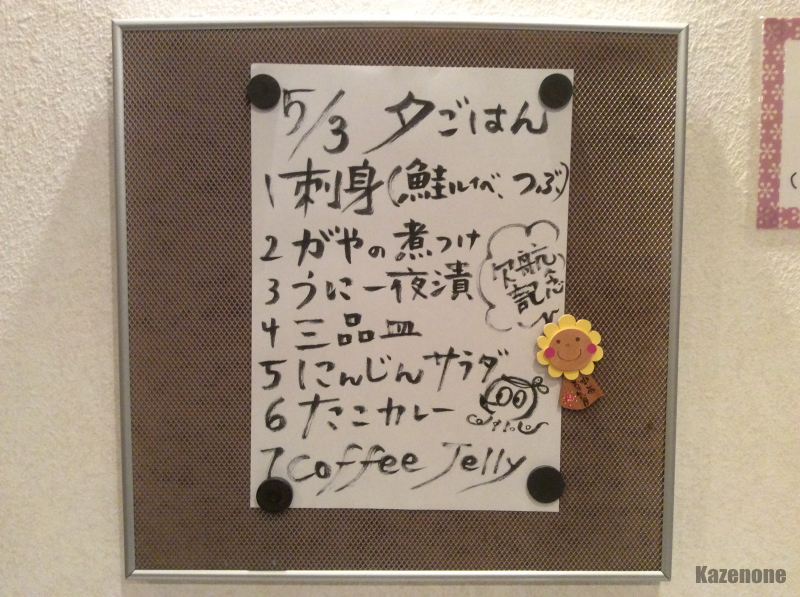 5/3 夕ごはん
1 刺身(鮭ルイベ、つぶ)
2 がやの煮つけ
3 うに一夜漬
4 三品皿
5 にんじんサラダ
6 たこカレー
7 Coffee Jelly
欠航
記念
Kazenone